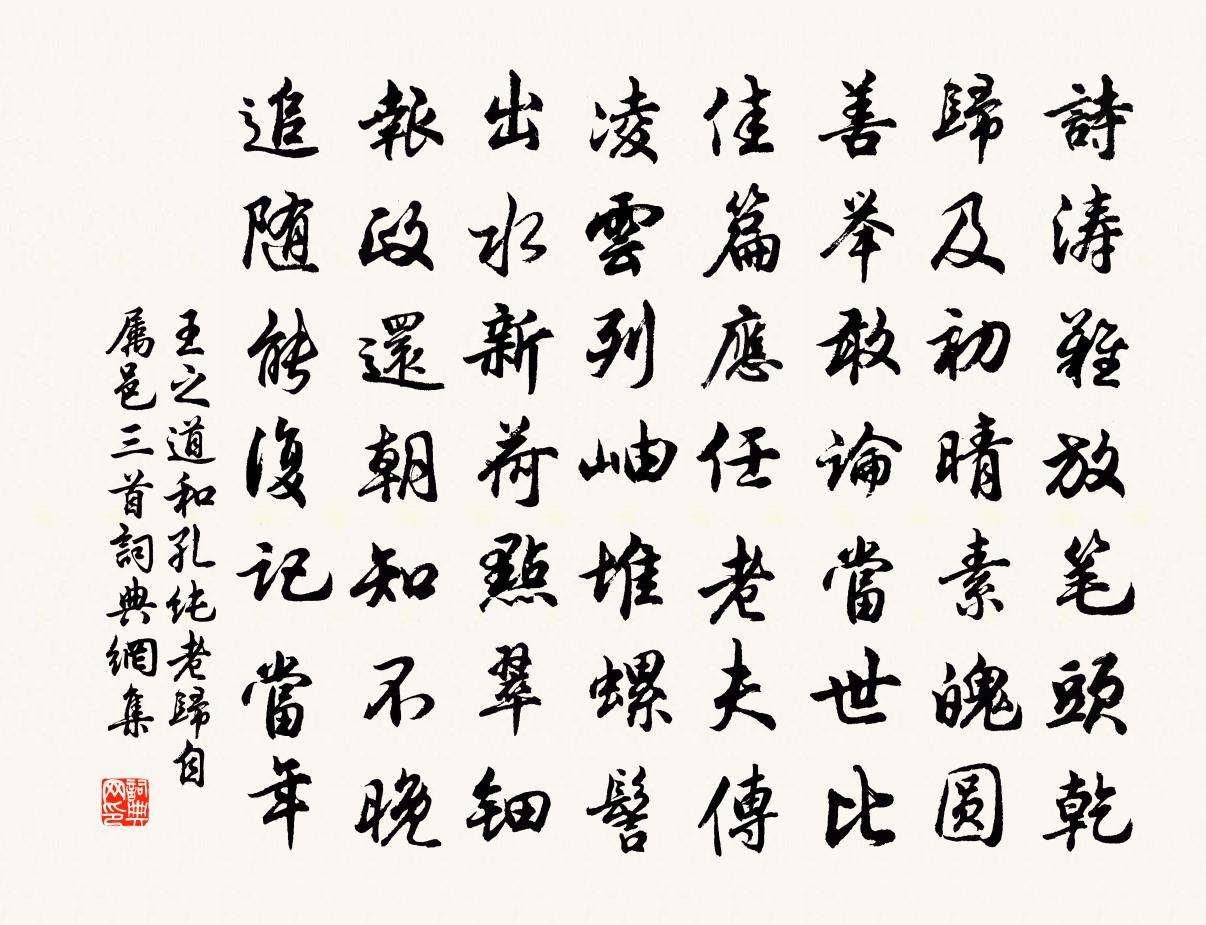 詩涛難放笔頭乾
歸及初晴素魄圆
善举敢論當世比
佳篇應任老夫傳
凌雲列岫堆螺髻
出水新荷點翠钿
報政還朝知不晚
追随能復記當年
王之道和孔纯老歸自
属邑三首詞典網集
詞典
网印